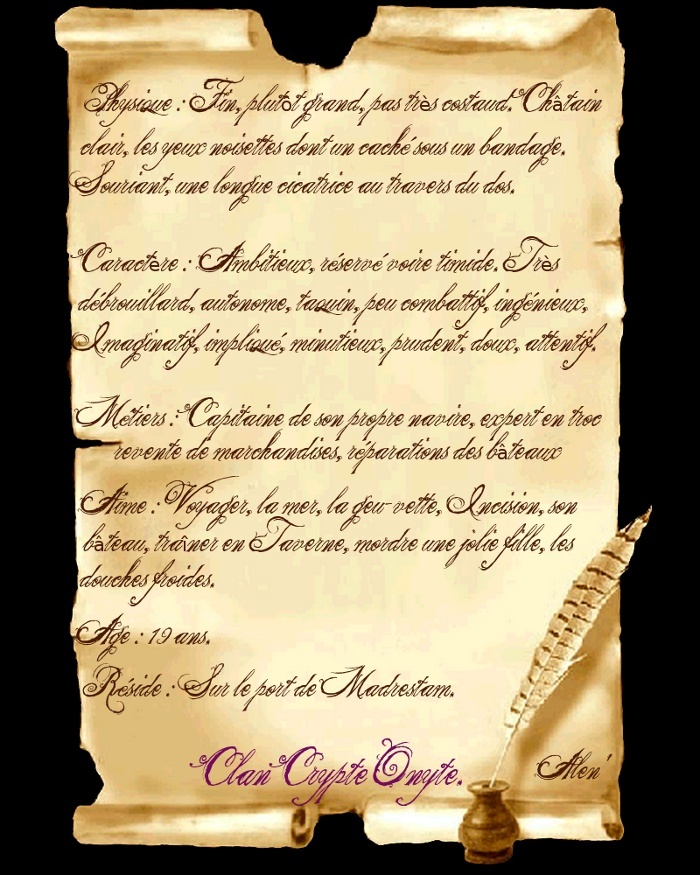 Physique : Fin, plutôt grand, pas très costaud. Châtain
clair, les yeux noisettes dont un caché sous un bandage.
Souriant, une longue cicatrice au travers du dos.
Caractère : Ambitieux, réservé voire timide. Très
débrouillard, autonome, taquin, peu combattif, ingénieux,
Imaginatif, impliqué, minutieux, prudent, doux, attentif.
Métiers : Capitaine de son propre navire, expert en troc
revente de marchandises, réparations des bâteaux
Aime : Voyager, la mer, la geu-vette, Incision, son
bâteau, traîner en Taverne, mordre une jolie fille, les
douches froides.
Age : 19 ans.
Réside : Sur le port de Madrestam.
Clan Crypte Onyte.
Alen'